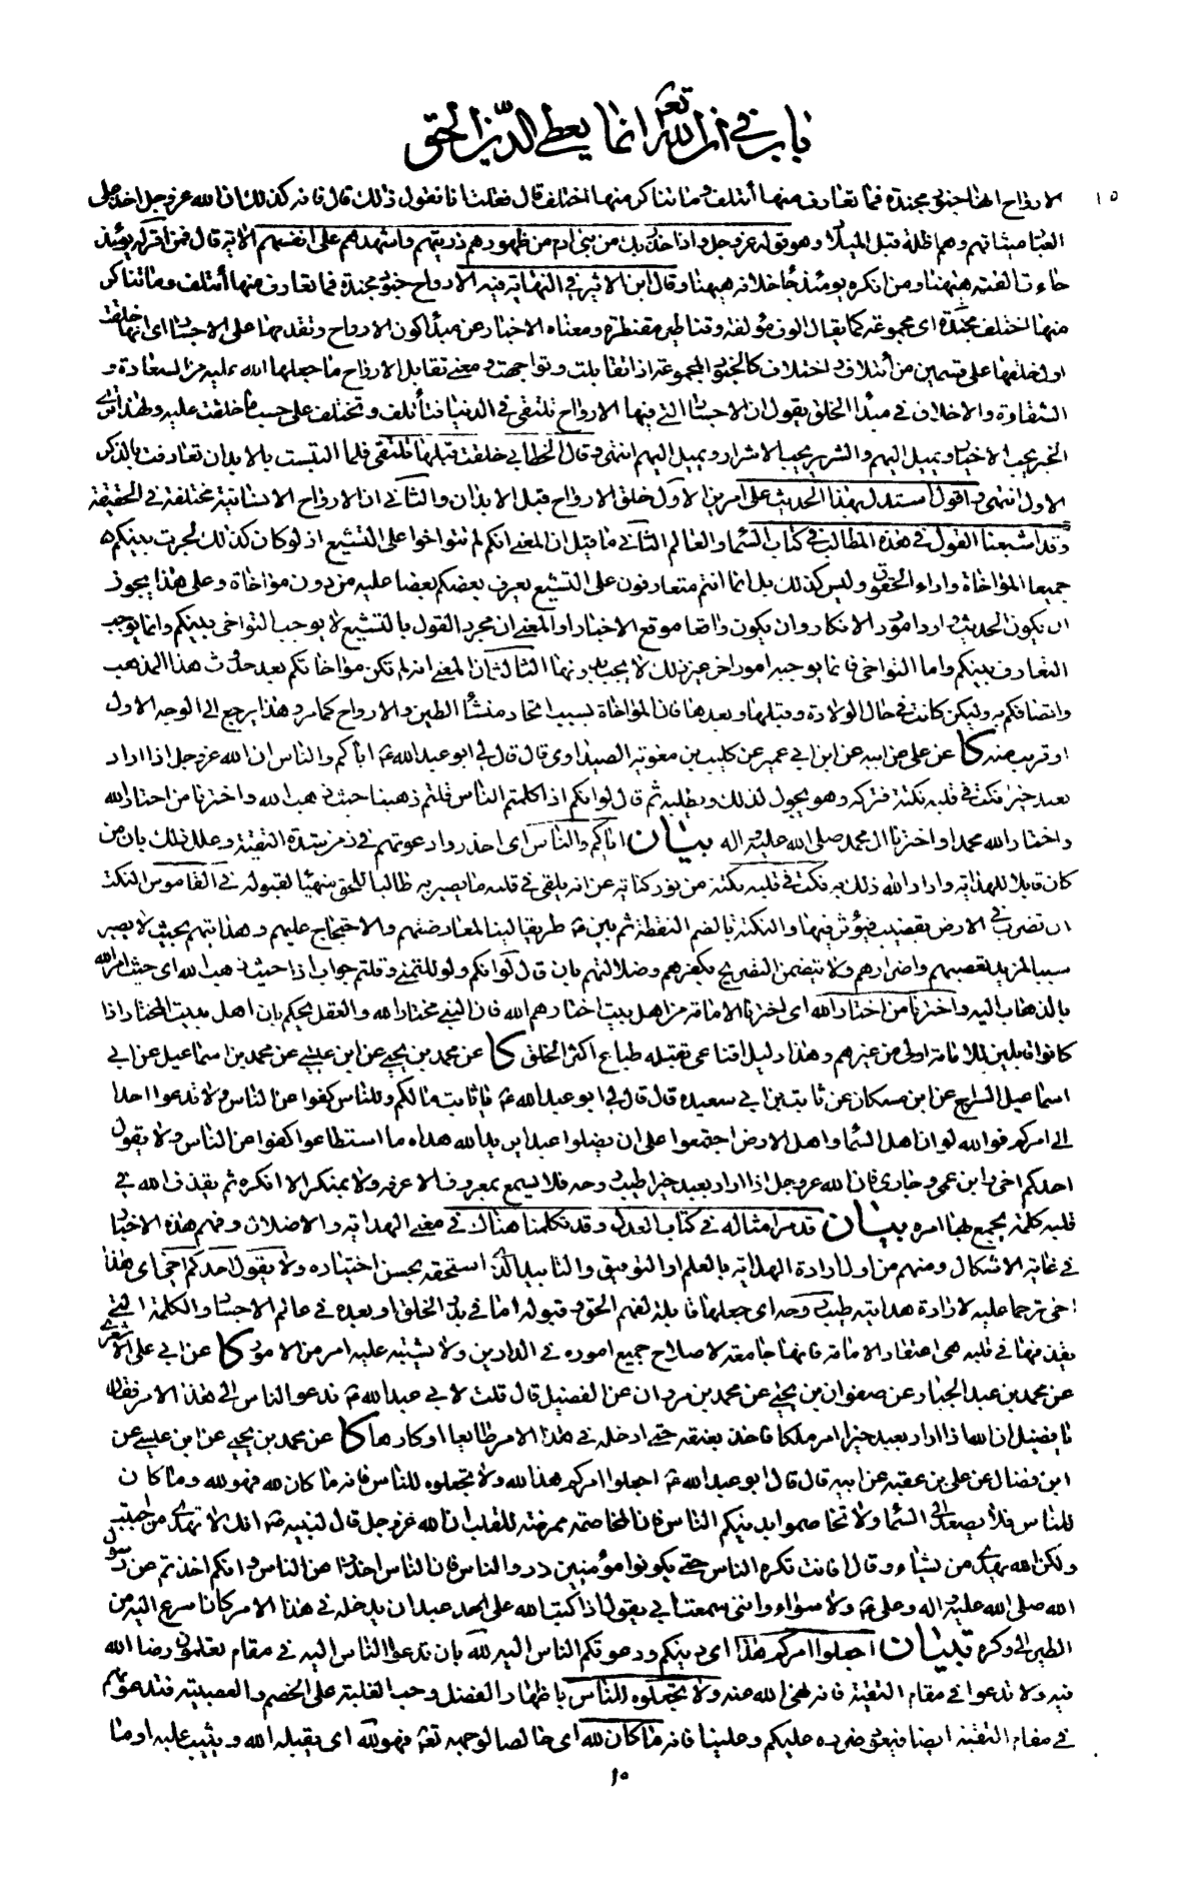 باب في ان الله تعـ انما يعطي الدين الحق
١٥
الارواح انها جنود مجندة فما تعارف منها ائتلف وما تناكر منها اختلف قال فقلت انا نقول ذلك قال فانه كذلك ان الله عز وجل اخذ على
العباد ميثاقهم وهم اظلة قبل الميلاد وهو قوله عز وجل واذ اخذ ربك من بني ادم من ظهورهم ذريتهم واشهدهم على انفسهم الاية قال فمن اقر له يومئذ
جاءت الفته ههنا ومن انكره يومئذ جا خلافه ههنا وقال ابن الاثير في النهاية فيه الارواح جنود مجندة فما تعارف منها ائتلف وما تناكر
منها اختلف مجندة اي مجموعة كما يقال الوف مؤلفة وقناطير مقنطرة ومعناه الاخبار عن مبدأ كون الارواح وتقدمها على الاجساد اي انها خلقت
اول خلقها على قسمين من ائتلاف واختلاف كالجنود المجموعة اذا تقابلت وتواجهت ومعنى تقابل الارواح ما جعلها الله عليه من السعادة و
الشقاوة والاخلاق في مبدأ الخلق يقول ان الاجساد التي فيها الارواح تلتقي في الدنيا فتأتلف وتختلف على حسب ما خلقت عليه ولهذا ترى
الخير يحب الاخيار ويميل اليهم والشرير يحب الاشرار ويميل اليهم انتهى وقال الخطابي خلقت قبلها تلتقي فلما التبست بالابدان تعارفت بالذكر
الاول انتهى واقول استدل بهذا الحديث على امرين الاول خلق الارواح قبل الابدان والثاني ان الارواح الانسانية مختلفة في الحقيقة
وقد اشبعنا القول في هذه المطالب في كتاب السماء والعالم الثاني ما قيل ان المعنى انكم لم تتواخوا على التشيع اذ لو كان كذلك لجرت بينكم
جميعا المؤاخاة واداء الحقوق وليس كذلك بل انما انتم متعارفون على التشيع يعرف بعضكم بعضا عليه من دون مؤاخاة وعلى هذا يجوز
ان يكون الحديث واردا مورد الانكار وان يكون واقعا موقع الاخبار او المعنى ان مجرد القول بالتشيع لا يوجب التواخي بينكم وانما يوجب
التعارف بينكم واما التواخي فانما يوجبه امور اخر غير ذلك لا يجب بدونها الثالث ان المعنى انه لم تكن مؤاخاتكم بعد حدوث هذا المذهب
واتصافكم به ولكن كانت في حال الولادة وقبلها وبعدها فان المؤاخاة بسبب اتحاد منشأ الطين والارواح كما مر وهذا يرجع الى الوجه الاول
او قريب منه كا عن علي عن ابيه عن ابن ابي عمير عن كليب بن معوية الصيداوي قال قال لي ابو عبد الله ع اياكم والناس ان الله عز وجل اذا اراد
بعبد خيرا نكت في قلبه نكتة فتركه وهو يجول لذلك ويطلبه ثم قال لو انكم اذا كلمتم الناس قلتم ذهبنا حيث ذهب الله واخترنا من اختار الله
واختار الله محمدا واخترنا ال محمد صلى الله عليه واله بيان اياكم والناس اي احذروا دعوتهم في زمن شدة التقية وعلل ذلك بان من
كان قابلا للهداية واراد الله ذلك به نكت في قلبه نكتة من نور كناية عن انه يلقي في قلبه ما يصير به طالبا للحق متهيئا لقبوله في القاموس النكت
ان تضرب في الارض بقضيب فيؤثر فيها والنكتة بالضم النقطة ثم بين ع طريقا لينا لمعارضتهم والاحتجاج عليهم وهدايتهم بحيث لا يصير
سببا لمزيد تعصبهم واضرارهم ولا يتضمن التصريح بكفرهم وضلالتهم بان قال لو انكم ولو للتمني وقلتم جواب اذا حيث ذهب الله اي حيث امر الله
بالذهاب اليه واخترنا من اختار الله اي اخترنا الامامة من اهل بيت اختارهم الله فان النبي مختار الله والعقل يحكم بان اهل بيت المختار اذا
كانوا قابلين للامامة اولى من غيرهم وهذا دليل اقناعي تقبله طباع اكثر الخلق كا عن محمد بن يحيى عن ابن عيسى عن محمد بن اسماعيل عن ابي
اسماعيل السراج عن ابن مسكان عن ثابت بن ابي سعيدة قال قال لي ابو عبد الله ع يا ثابت ما لكم وللناس كفوا عن الناس ولا تدعوا احدا
الى امركم فوالله لو ان اهل السماء واهل الارض اجتمعوا على ان يضلوا عبدا يريد الله هداه ما استطاعوا كفوا عن الناس ولا يقول
احدكم اخي وابن عمي وجاري فان الله عز وجل اذا اراد بعبد خيرا طيب روحه فلا يسمع بمعروف الا عرفه ولا بمنكر الا انكره ثم يقذف الله في
قلبه كلمة يجمع بها امره بيان قد مر امثاله في كتاب العدل وقد تكلمنا هناك في معنى الهداية والاضلال وفهم هذه الاخبار
في غاية الاشكال ومنهم من اول ارادة الهداية بالعلم او التوفيق والتاييد الذي استحقه بحسن اختياره ولا يقول احدكم اخي اي هذا
اخي ترحما عليه لارادة هدايته طيب روحه اي جعلها قابلة لفهم الحق وقبوله اما في بدو الخلق او بعده في عالم الاجساد والكلمة التي
يقذفها في قلبه هي اعتقاد الامامة فانها جامعة لاصلاح جميع اموره في الدارين ولا يشتبه عليه امر من الامور كا عن ابي علي الاشعري
عن محمد بن عبد الجبار عن صفوان بن يحيى عن محمد بن مروان عن الفضيل قال قلت لابي عبد الله ع ندعو الناس الى هذا الامر فقال
يا فضيل ان الله اذا اراد بعبد خيرا امر ملكا فاخذ بعنقه حتى ادخله في هذا الامر طايعا او كارها كا عن محمد بن يحيى عن ابن عيسى عن
ابن فضال عن علي بن عقبة عن ابيه قال قال ابو عبد الله ع اجعلوا امركم هذا لله ولا تجعلوه للناس فانه ما كان لله فهو لله وما كان
للناس فلا يصعد الى السماء ولا تخاصموا بدينكم الناس فان المخاصمة ممرضة للقلب ان الله عز وجل قال لنبيه ص انك لا تهدي من احببت
ولكن الله يهدي من يشاء وقال افانت تكره الناس حتى يكونوا مؤمنين ذروا الناس فان الناس اخذوا عن الناس وانكم اخذتم عن رسول
الله صلى الله عليه واله وعلي ع ولا سواء وانني سمعت ابي يقول اذا كتب الله على عبد ان يدخله في هذا الامر كان اسرع اليه من
الطير الى وكره تبيان اجعلوا امركم هذا اي دينكم ودعوتكم الناس اليه لله بان تدعوا الناس اليه في مقام تعلمون رضا الله
فيه ولا تدعوا في مقام التقية فانه نهى الله عنه ولا تجعلوه للناس باظهار الفضل وحب الغلبة على الخصم والعصبية فتدعوهم
في مقام التقية ايضا فيعود ضرره عليكم وعلينا فانه ما كان لله اي خالصا لوجهه تعـ فهو لله اي يقبله الله ويثيب عليه او ما
١٥